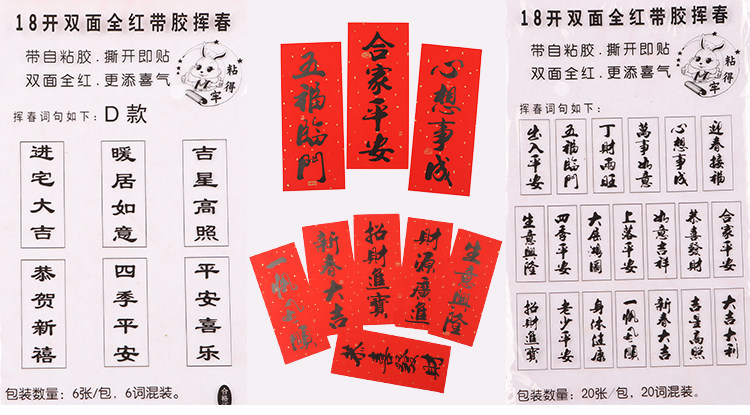 18开双面全红带胶挥春
带自粘胶.撕开即贴
双面全红.更添喜气
粘得牢
挥春词句如下: D款
进宅大吉
暖居如意
吉星高照
恭贺新禧
四季平安
平安喜乐
包装数量: 6张/包, 6词混装。
五福臨門
合家平安
心想事成
一帆风順
新春大吉
招財進寶
財源廣進
生意興隆
恭喜發財
18开双面全红带胶挥春
带自粘胶.撕开即贴
双面全红.更添喜气
粘得牢
挥春词句如下:
出入平安
五福臨門
丁財兩旺
萬事如意
心想事成
迎春接福
生意興隆
四季平安
大展鴻圖
上落平安
如意吉祥
恭喜發財
合家平安
招財進寶
老少平安
身体健康
一帆风順
新春大吉
吉星高照
大吉大利
包装数量: 20张/包, 20词混装。